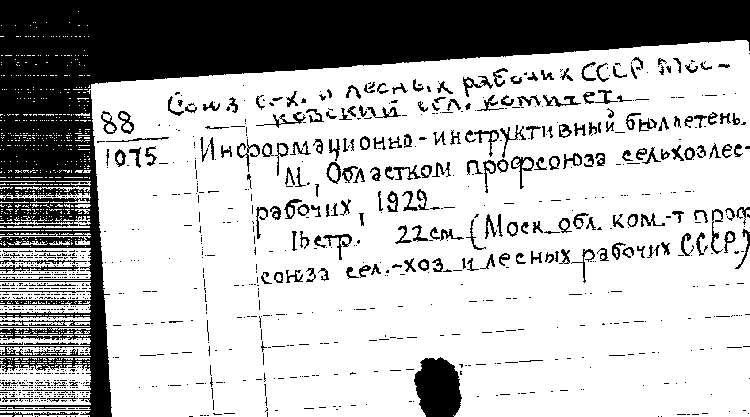 Союз с.-х. и лесных рабочих СССР Мос-
ковский обл. комитет.
88
1075
Информационно-инструктивный бюллетень.
М., Областком профсоюза сельхозлес-
рабочих, 1929
16 стр. 22 см. (Моск. обл. ком-т проф
союза сел.-хоз и лесных рабочих СССР.)